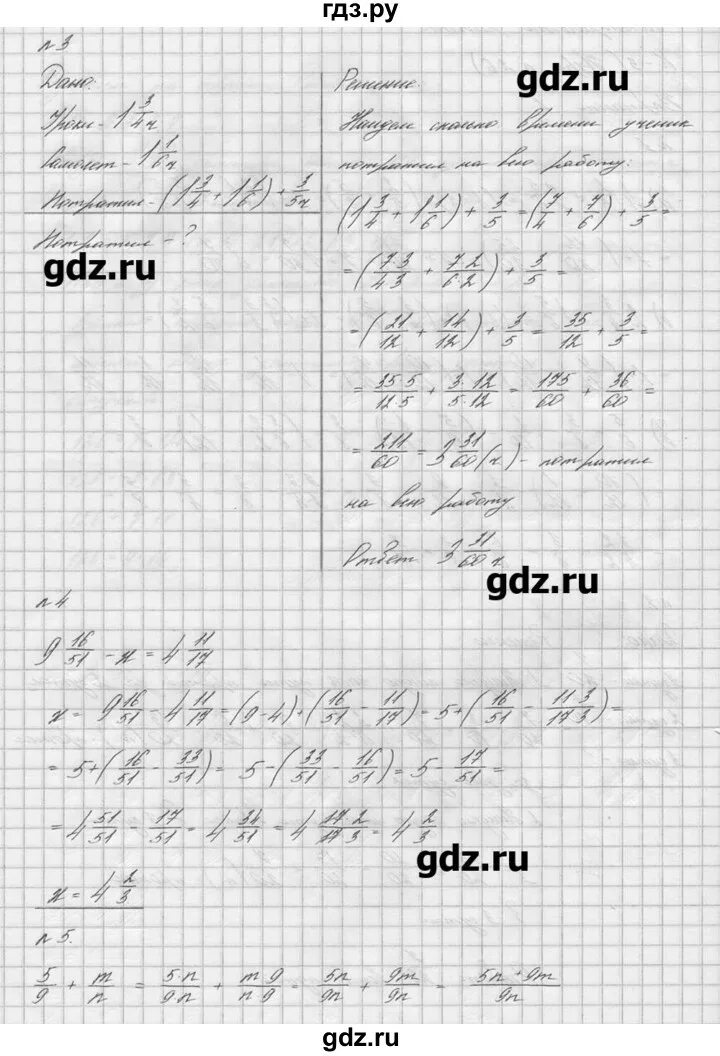 гдз.ру
№3
Дано:
Уроки - 1 3/4 ч
Самолет - 1 1/6 ч
Потратил - (1 3/4 + 1 1/6) + 3/5 ч
Потратил - ?
gdz.ru
Решение.
gdz.ru
Найдем сколько времени ученик
потратил на всю работу:
(1 3/4 + 1 1/6) + 3/5 = (7/4 + 7/6) + 3/5 =
= (7·3/4·3 + 7·2/6·2) + 3/5 =
= (21/12 + 14/12) + 3/5 = 35/12 + 3/5 =
= 35·5/12·5 + 3·12/5·12 = 175/60 + 36/60 =
= 211/60 = 3 31/60 (ч) - потратил
на всю работу
Ответ: 3 31/60 ч
gdz.ru
№4
9 16/51 - x = 4 11/17
x = 9 16/51 - 4 11/17 = (9-4) + (16/51 - 11/17) = 5 + (16/51 - 11·3/17·3) =
= 5 + (16/51 - 33/51) = 5 - (33/51 - 16/51) = 5 - 17/51 =
= 4 51/51 - 17/51 = 4 34/51 = 4 17·2/17·3 = 4 2/3
gdz.ru
x = 4 2/3
№5.
5/9 + m/n = 5·n/9·n + m·9/n·9 = 5n/9n + 9m/9n = 5n+9m/9n
gdz.ru